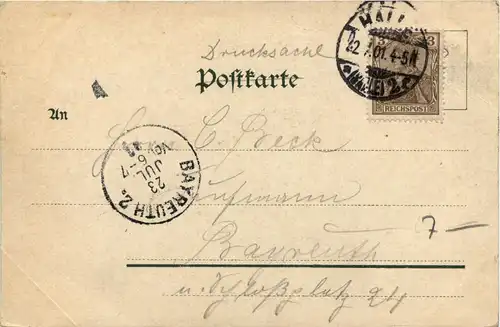 HALL
2.7.01.4-5N
(SAALE) 2.c
3 3
REICHSPOST
Drucksache
Postkarte
An
Herrn C. Beck
Kaufmann
Bayreuth
Schloßplatz 24
BAYREUTH 2.
23
JUL
6-7
7-